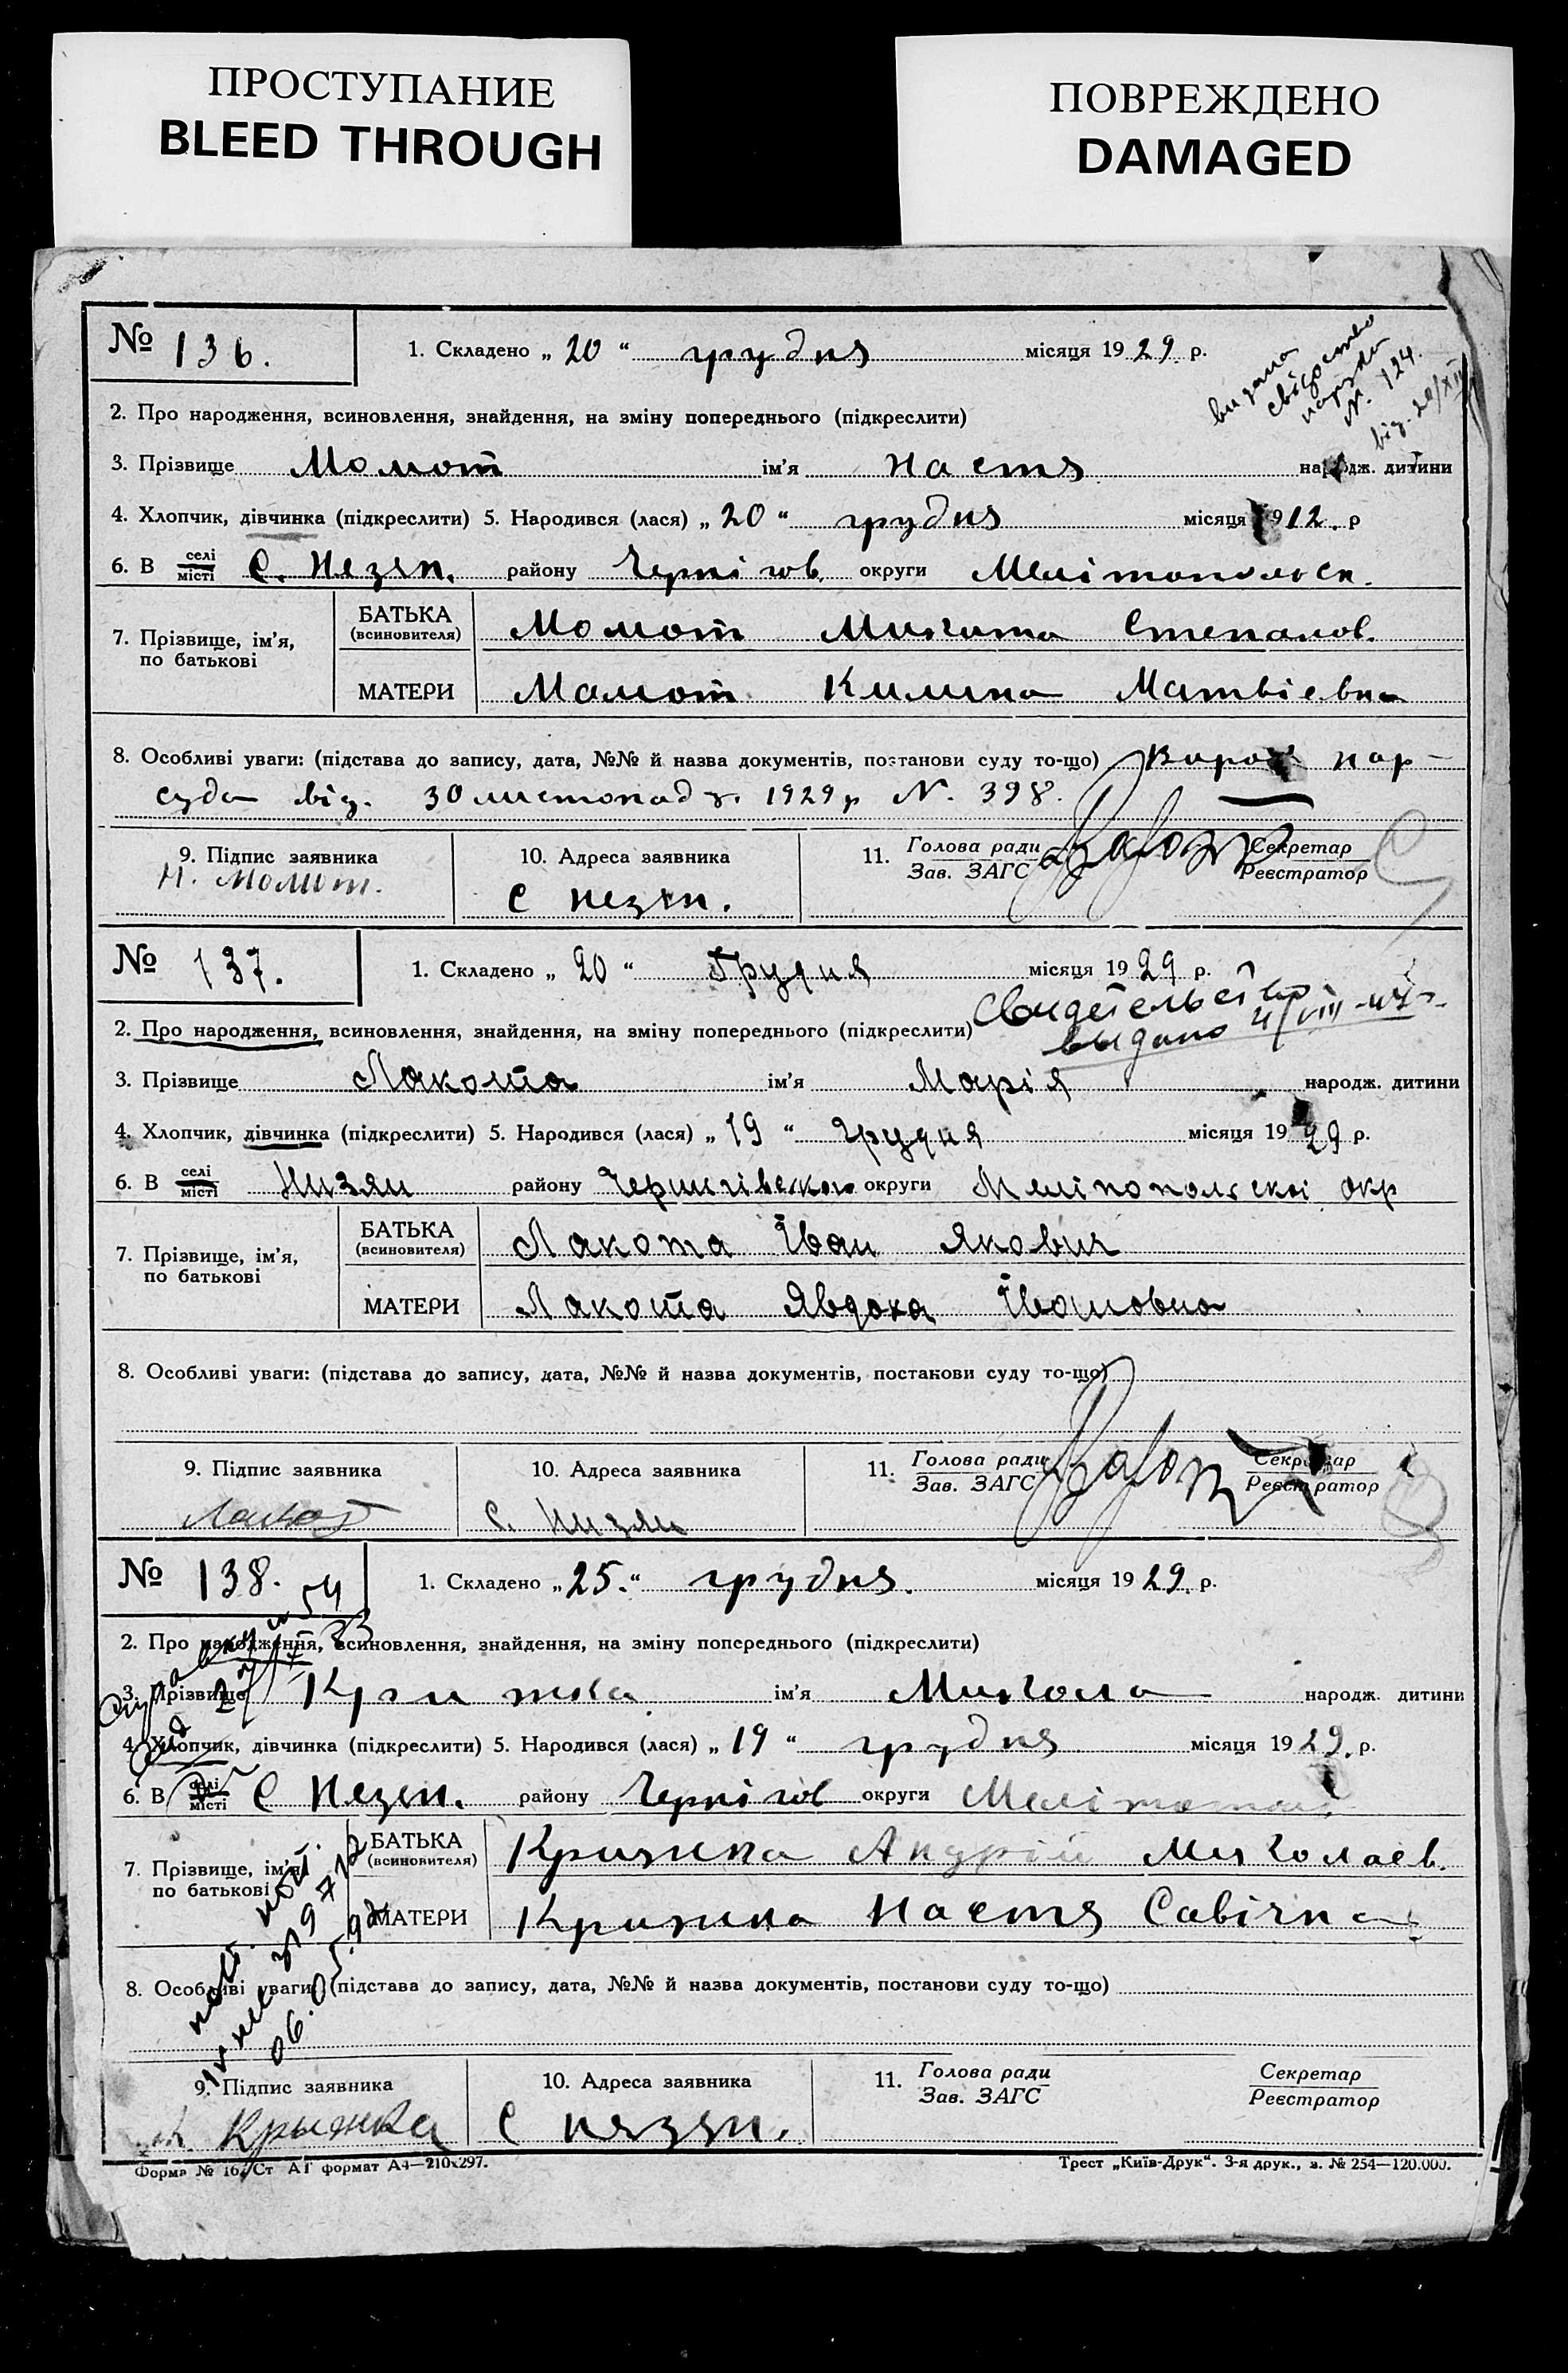 ПРОСТУПАНИЕ
BLEED THROUGH
ПОВРЕЖДЕНО
DAMAGED
№ 136.
1. Складено „ 20 “ грудня місяця 1929. р.
видана
свідоцтво
N. 124.
від. 20/XII
2. Про народження, всиновлення, знайдення, на зміну попереднього (підкреслити)
3. Прізвище Момот ім'я Настя народж. дитини
4. Хлопчик, дівчинка (підкреслити) 5. Народився (лася) „ 20 “ грудня місяця 1912. р
6. В селі/місті С. Незян. району Чернігов. округи Мелітопольск.
7. Прізвище, ім'я, по батькові
БАТЬКА (всиновителя) Момот Микита Степанов.
МАТЕРИ Мамот Килина Матвіевна
8. Особливі уваги: (підстава до запису, дата, №№ й назва документів, постанови суду то-що) нар-
суда від. 30 листопада. 1929р N. 398.
9. Підпис заявника
10. Адреса заявника
11. Голова ради/Зав. ЗАГС
Секретар/Реєстратор
Н. Момот.
С незян.
№ 137.
1. Складено „ 20 “ Грудня місяця 1929 р.
Свидетельство
выдано 4/VIII-47г.
2. Про народження, всиновлення, знайдення, на зміну попереднього (підкреслити)
3. Прізвище Лакота ім'я Марія народж. дитини
4. Хлопчик, дівчинка (підкреслити) 5. Народився (лася) „ 19 “ грудня місяця 1929 р.
6. В селі/місті Низян району Чернигівського округи Меліпопольскоі окр
7. Прізвище, ім'я, по батькові
БАТЬКА (всиновителя) Лакота Іван Якович
МАТЕРИ Лакота Явдоха Івановна
8. Особливі уваги: (підстава до запису, дата, №№ й назва документів, постанови суду то-що)
9. Підпис заявника
10. Адреса заявника
11. Голова ради/Зав. ЗАГС
Секретар/Реєстратор
Лакота
с. Низян
№ 138.
1. Складено „ 25. “ грудня. місяця 1929. р.
2. Про народження, всиновлення, знайдення, на зміну попереднього (підкреслити)
3. Прізвище ім'я Микола народж. дитини
4. Хлопчик, дівчинка (підкреслити) 5. Народився (лася) „ 19 “ грудня місяця 1929. р.
6. В селі/місті С Незян. району Чернігов округи
7. Прізвище, ім'я, по батькові
БАТЬКА (всиновителя) Крижка Андрій Миколаев.
МАТЕРИ Крижка Настя Савічна
8. Особливі уваги: (підстава до запису, дата, №№ й назва документів, постанови суду то-що)
9. Підпис заявника
10. Адреса заявника
11. Голова ради/Зав. ЗАГС
Секретар/Реєстратор
Крыжка
С незян.
Форма № 16, Ст АГ формат А4—210x297.
Трест „Київ-Друк“. 3-я друк., з. № 254—120.000.